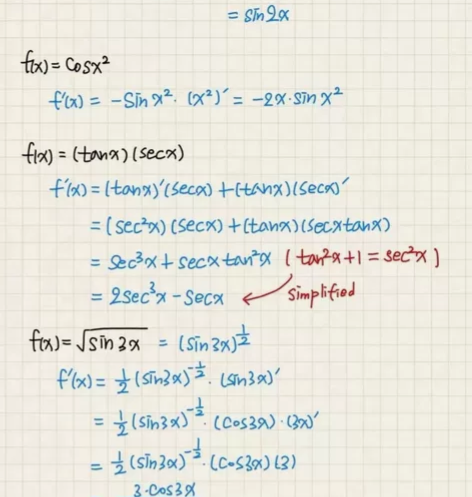 = sin2x
f(x) = cosx²
f'(x) = -sinx² · (x²)' = -2x·sinx²
f(x) = (tanx)(secx)
f'(x) = (tanx)'(secx) + (tanx)(secx)'
= (sec²x)(secx) + (tanx)(secxtanx)
= sec³x + secxtan²x (tan²x+1 = sec²x)
= 2sec³x - secx ← simplified
f(x) = √sin3x = (sin3x)^½
f'(x) = ½(sin3x)^-½ · (sin3x)'
= ½(sin3x)^-½ · (cos3x) · (3x)'
= ½(sin3x)^-½ · (cos3x)(3)
3·cos3x